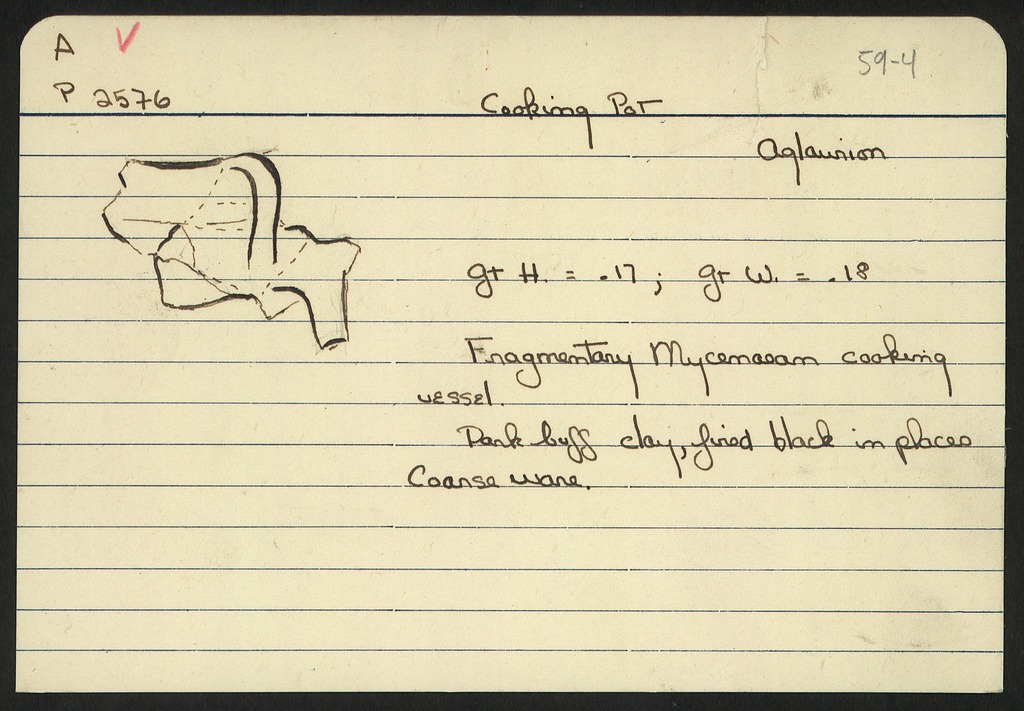 A
59-4
P 2576
Cooking Pot
Aglaurion
gr H. = .17; gr W. = .18
Fragmentary Mycenaean cooking
vessel.
Dark buff clay, fired black in places
Coarse ware.